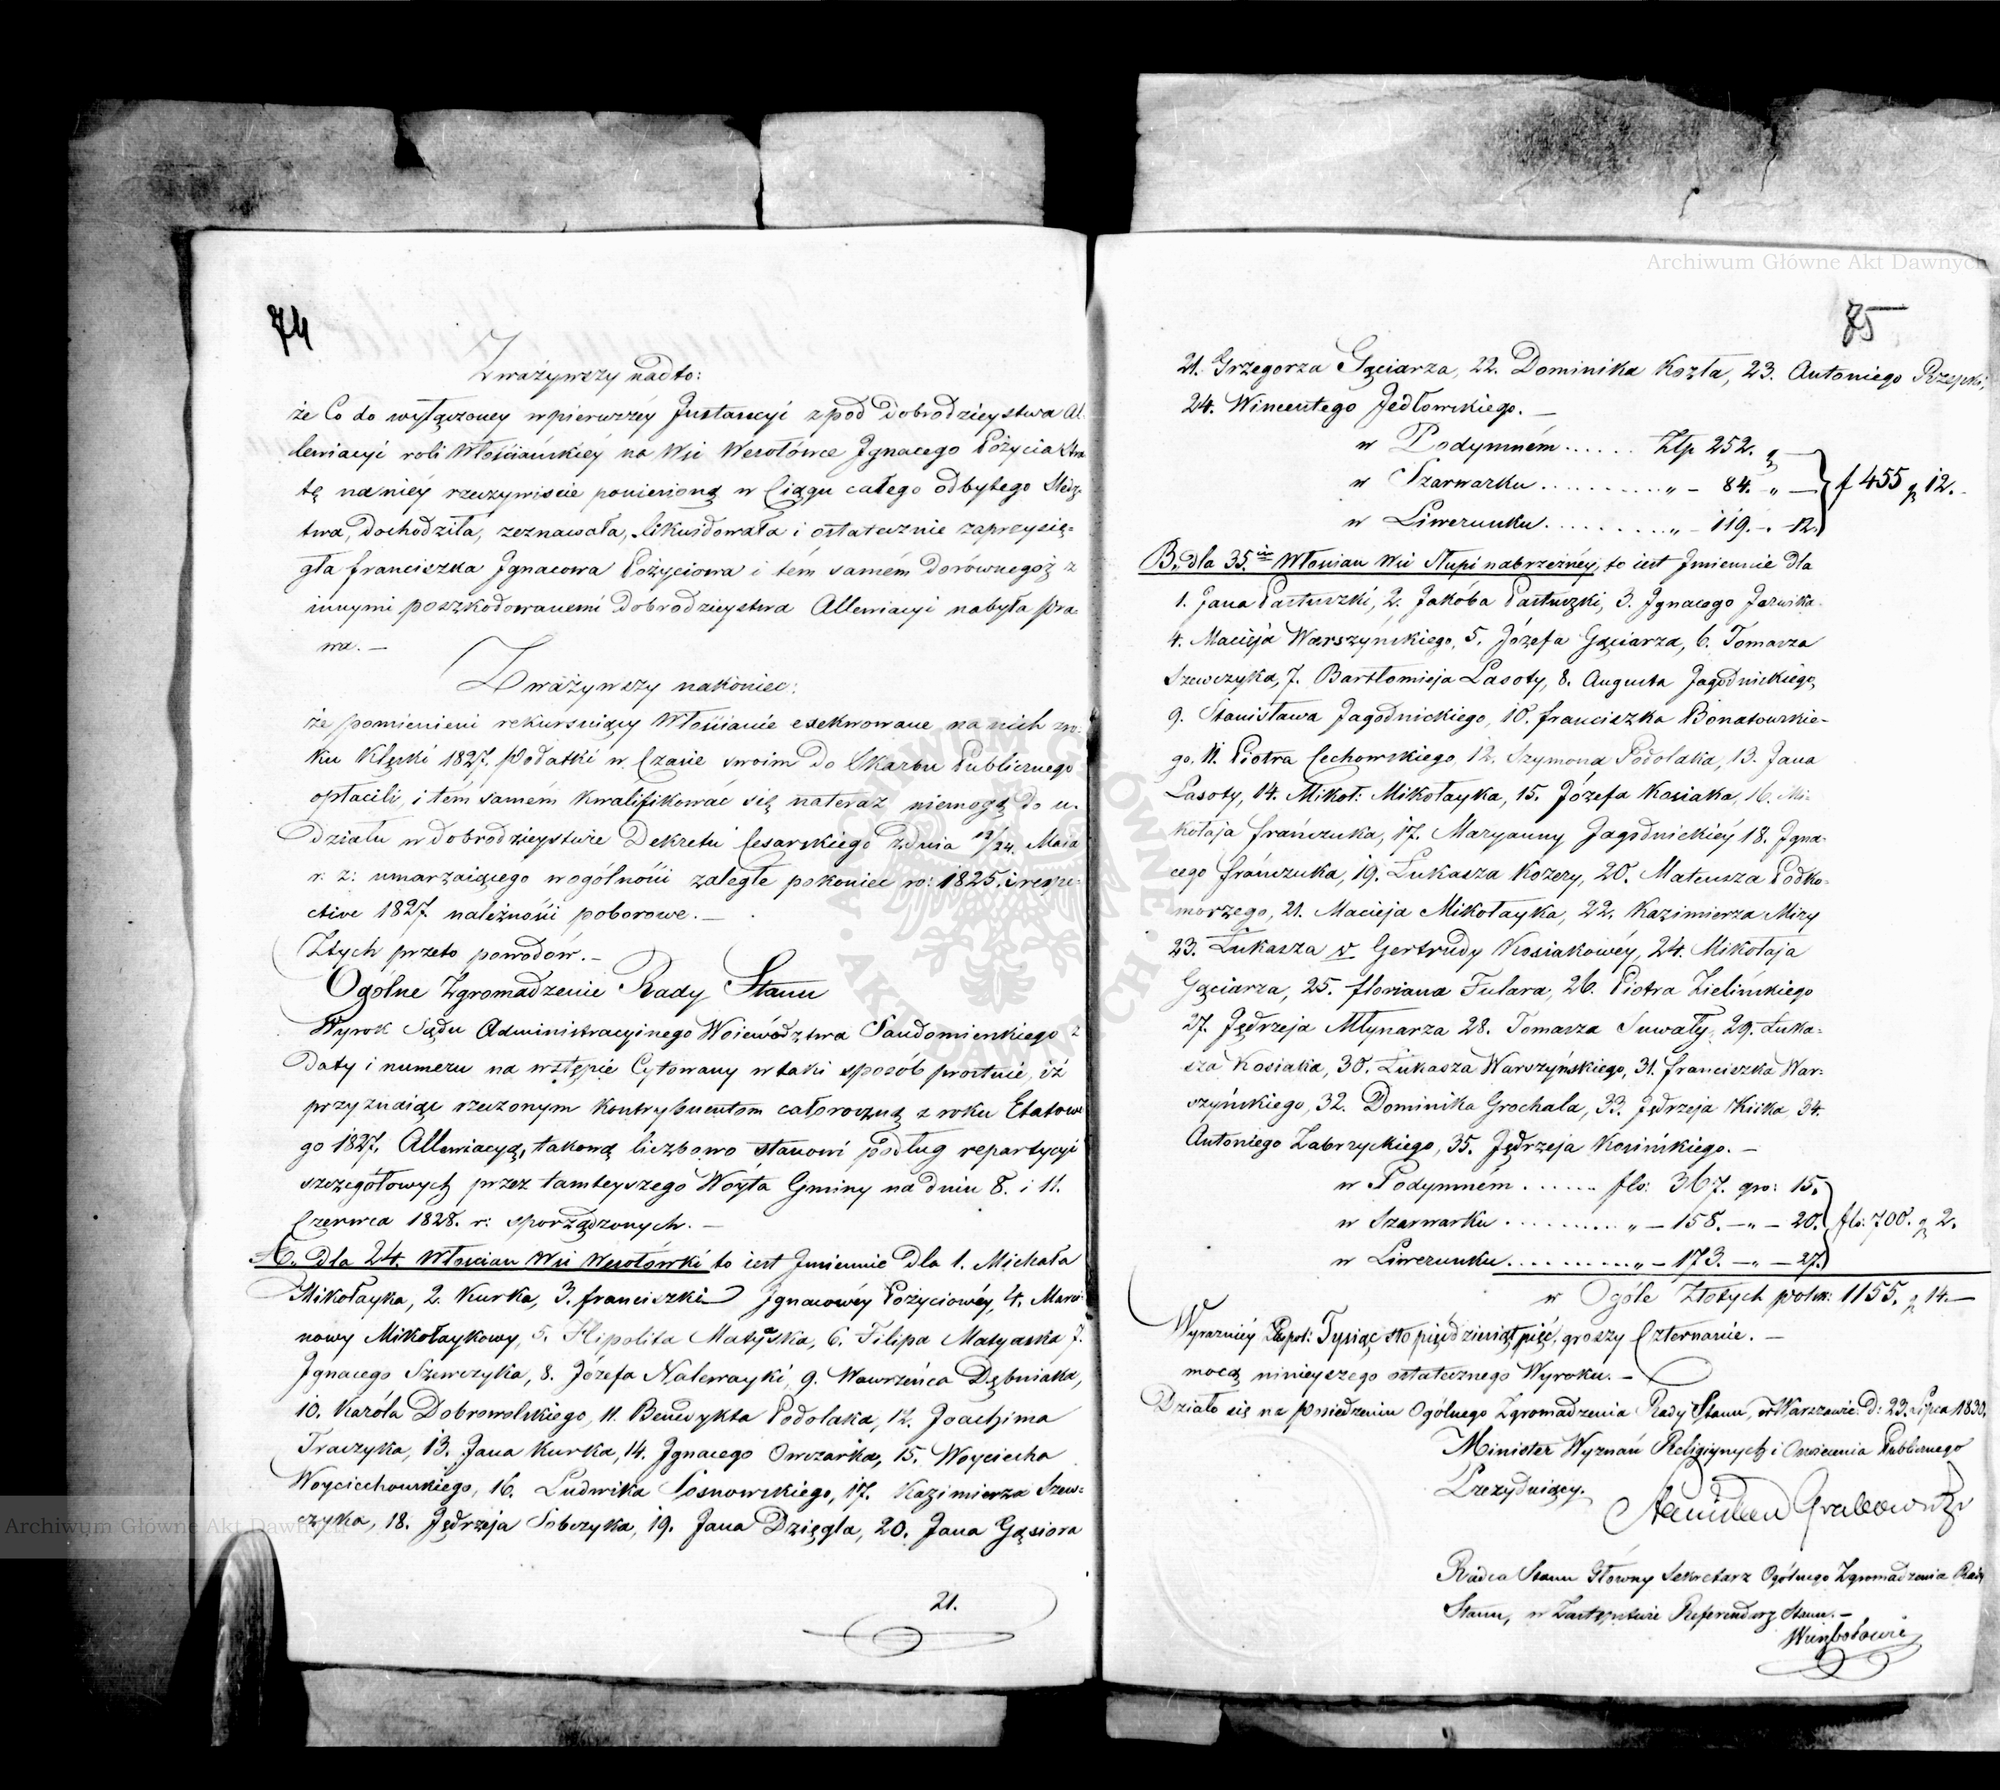 74
Zważywszy nadto:
że Co do wyłączoney wpierwszéy Jnstancyi zpod Dobrodzieystwa Al-
lewiacyi roli Włościańskiéy na Wsi Wesołówce Jgnacego Pożycia Stra
tę na niéy rzeczywiście poniesioną w Ciągu całego odbytego Śledz-
twa, Dochodziła, zeznawała, likwidowała i ostatecznie zaprzysię-
gła franciszka Jgnacowa Pożyciowa i tém samém Do równegoż z
innymi poszkodowanemi Dobrodzieystwa Allewiacyi nabyła pra-
wa. —
Zważywszy nakoniec:
że pomienieni rekursuiący Włościanie exekwowane na nich zro-
ku Klęski 1827. Podatki w Czasie swoim do Skarbu Publicznego
opłacili, i tém samém kwalifikować się nateraz niemogą do u-
działu w dobrodzieystwie Dekretu Cesarskiego zdnia 12/24. Maia
r. z: umarzaiącego wogólności zaległe pokoniec ro: 1825. i respe-
ctive 1827. należności poborowe. —
Ztych przeto powodów. —
Ogólne Zgromadzenie Rady Stanu
Wyrok Sądu Administracyinego Woiewództwa Sandomirskiego z
Daty i numeru na wstępie Cytowany w taki sposób prostuie, iż
przyznaiąc rzeczonym kontrybuentom całoroczną z roku Etatowe
go 1827. Allewiacyą, takową liczbowo stanowi podług repartycyi
szczegółowych przez tamteyszego Woyta Gminy na dniu 8. i 11.
Czerwca 1828. r: sporządzonych. —
A. dla 24. Włościan Wsi Wesołówki to iest Jmiennie dla 1. Michała
Mikołayka, 2. Kurka, 3. franciszki Jgnacowéy Pożyciowéy, 4. Marci-
nowy Mikołaykowy, 5. Hipolita Matyaska, 6. Filipa Matyaska 7.
Jgnacego Szewczyka, 8. Józefa Nalewayki, 9. Wawrzeńca Dębniaka,
10. Karóla Dobrowolskiego, 11. Benedykta Podolaka, 12. Joachima
Traczyka, 13. Jana Kurka, 14. Jgnacego Owczarka, 15. Woyciecha
Woyciechowskiego, 16. Ludwika Sosnowskiego, 17. Kazimierza Szew-
czyka, 18. Jędrzeja Sobczyka, 19. Jana Dzięgla, 20. Jana Gąsiora
21.
75
21. Grzegorza Gąciarza, 22. Dominika Kozła, 23. Antoniego Rzepki,
24. Wincentego Jedłowskiego. —
w Podymném . . . . . . Złp 252. g —
w Szarwarku . . . . . . . . . . „ — 84. „ — f 455 g 12.
w Liwerunku . . . . . . . . . „ — 119. — 12.
B. dla 35. Włościan Wsi Słupi nabrzeżnéy, to iest Jmiennie dla
1. Jana Pastuszki, 2. Jakóba Pastuszki, 3. Jgnacego Jarzwika
4. Macieja Warszyńskiego, 5. Józefa Gąciarza, 6. Tomasza
Szewczyka, 7. Bartłomieja Lasoty, 8. Augusta Jagodnickiego,
9. Stanisława Jagodnickiego, 10. franciszka Bonatowskie-
go, 11. Piotra Cechowskiego, 12. Szymona Podolaka, 13. Jana
Lasoty, 14. Mikoł: Mikołayka, 15. Józefa Kosiaka, 16. Mi-
kołaja frańczuka, 17. Maryanny Jagodnickiéy 18. Jgna-
cego frańczuka, 19. Łukasza Kozery, 20. Mateusza Podko-
morzego, 21. Macieja Mikołayka, 22. Kazimierza Mizy
23. Łukasza v Gertrudy Kosiakowéy, 24. Mikołaja
Gąciarza, 25. floriana Fulara, 26. Piotra Zielińskiego
27. Jędrzeja Młynarza 28. Tomasza Suwały, 29. Łuka-
sza Kosiaka, 30. Łukasza Warszyńskiego, 31. franciszka War-
szyńskiego, 32. Dominika Grochala, 33. Jędrzeja Kiika, 34.
Antoniego Zabrzyckiego, 35. Jędrzeja Kosińskiego. —
w Podymném . . . . . . flo: 367. gro: 15.
w Szarwarku . . . . . . . . . . „ — 158. — „ — 20. flo: 700. g 2.
w Liwerunku . . . . . . . . . . „ — 173. — „ — 27.
w Ogóle Złotych polsk: 1155. g 14. —
Wyrazniéy Złpol: Tysiąc sto pięćdziesiąt pięć, groszy Czternaście. —
mocą ninieyszego ostatecznego Wyroku. —
Działo się na posiedzeniu Ogólnego Zgromadzenia Rady Stanu, w Warszawie D: 23. Lipca 1830.
Minister Wyznań Religiynych i Oświecenia Publicznego
Prezyduiący.
Stanisław Grabowski
Radca Stanu Główny Sekretarz Ogólnego Zgromadzenia Rady
Stanu, w Zastępstwie Referendarz Stanu. —
Archiwum Główne Akt Dawnych
Archiwum Główne Akt Dawnych
ARCHIWUM GŁÓWNE AKT DAWNYCH